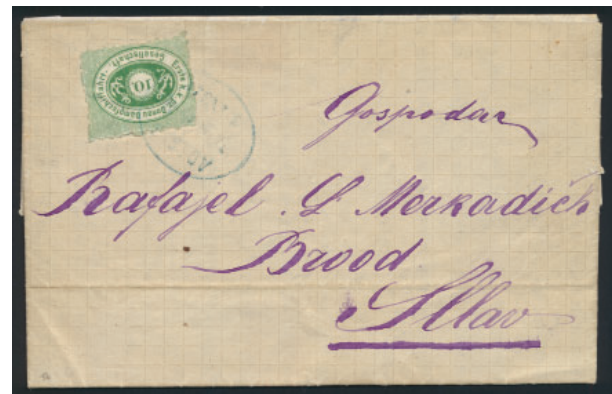 Erste k.k. pr. Donau Dampfschiffahrt-Gesellschaft
10.
Gospodar
Rafajel . L Merkadich
Brood
Sllav